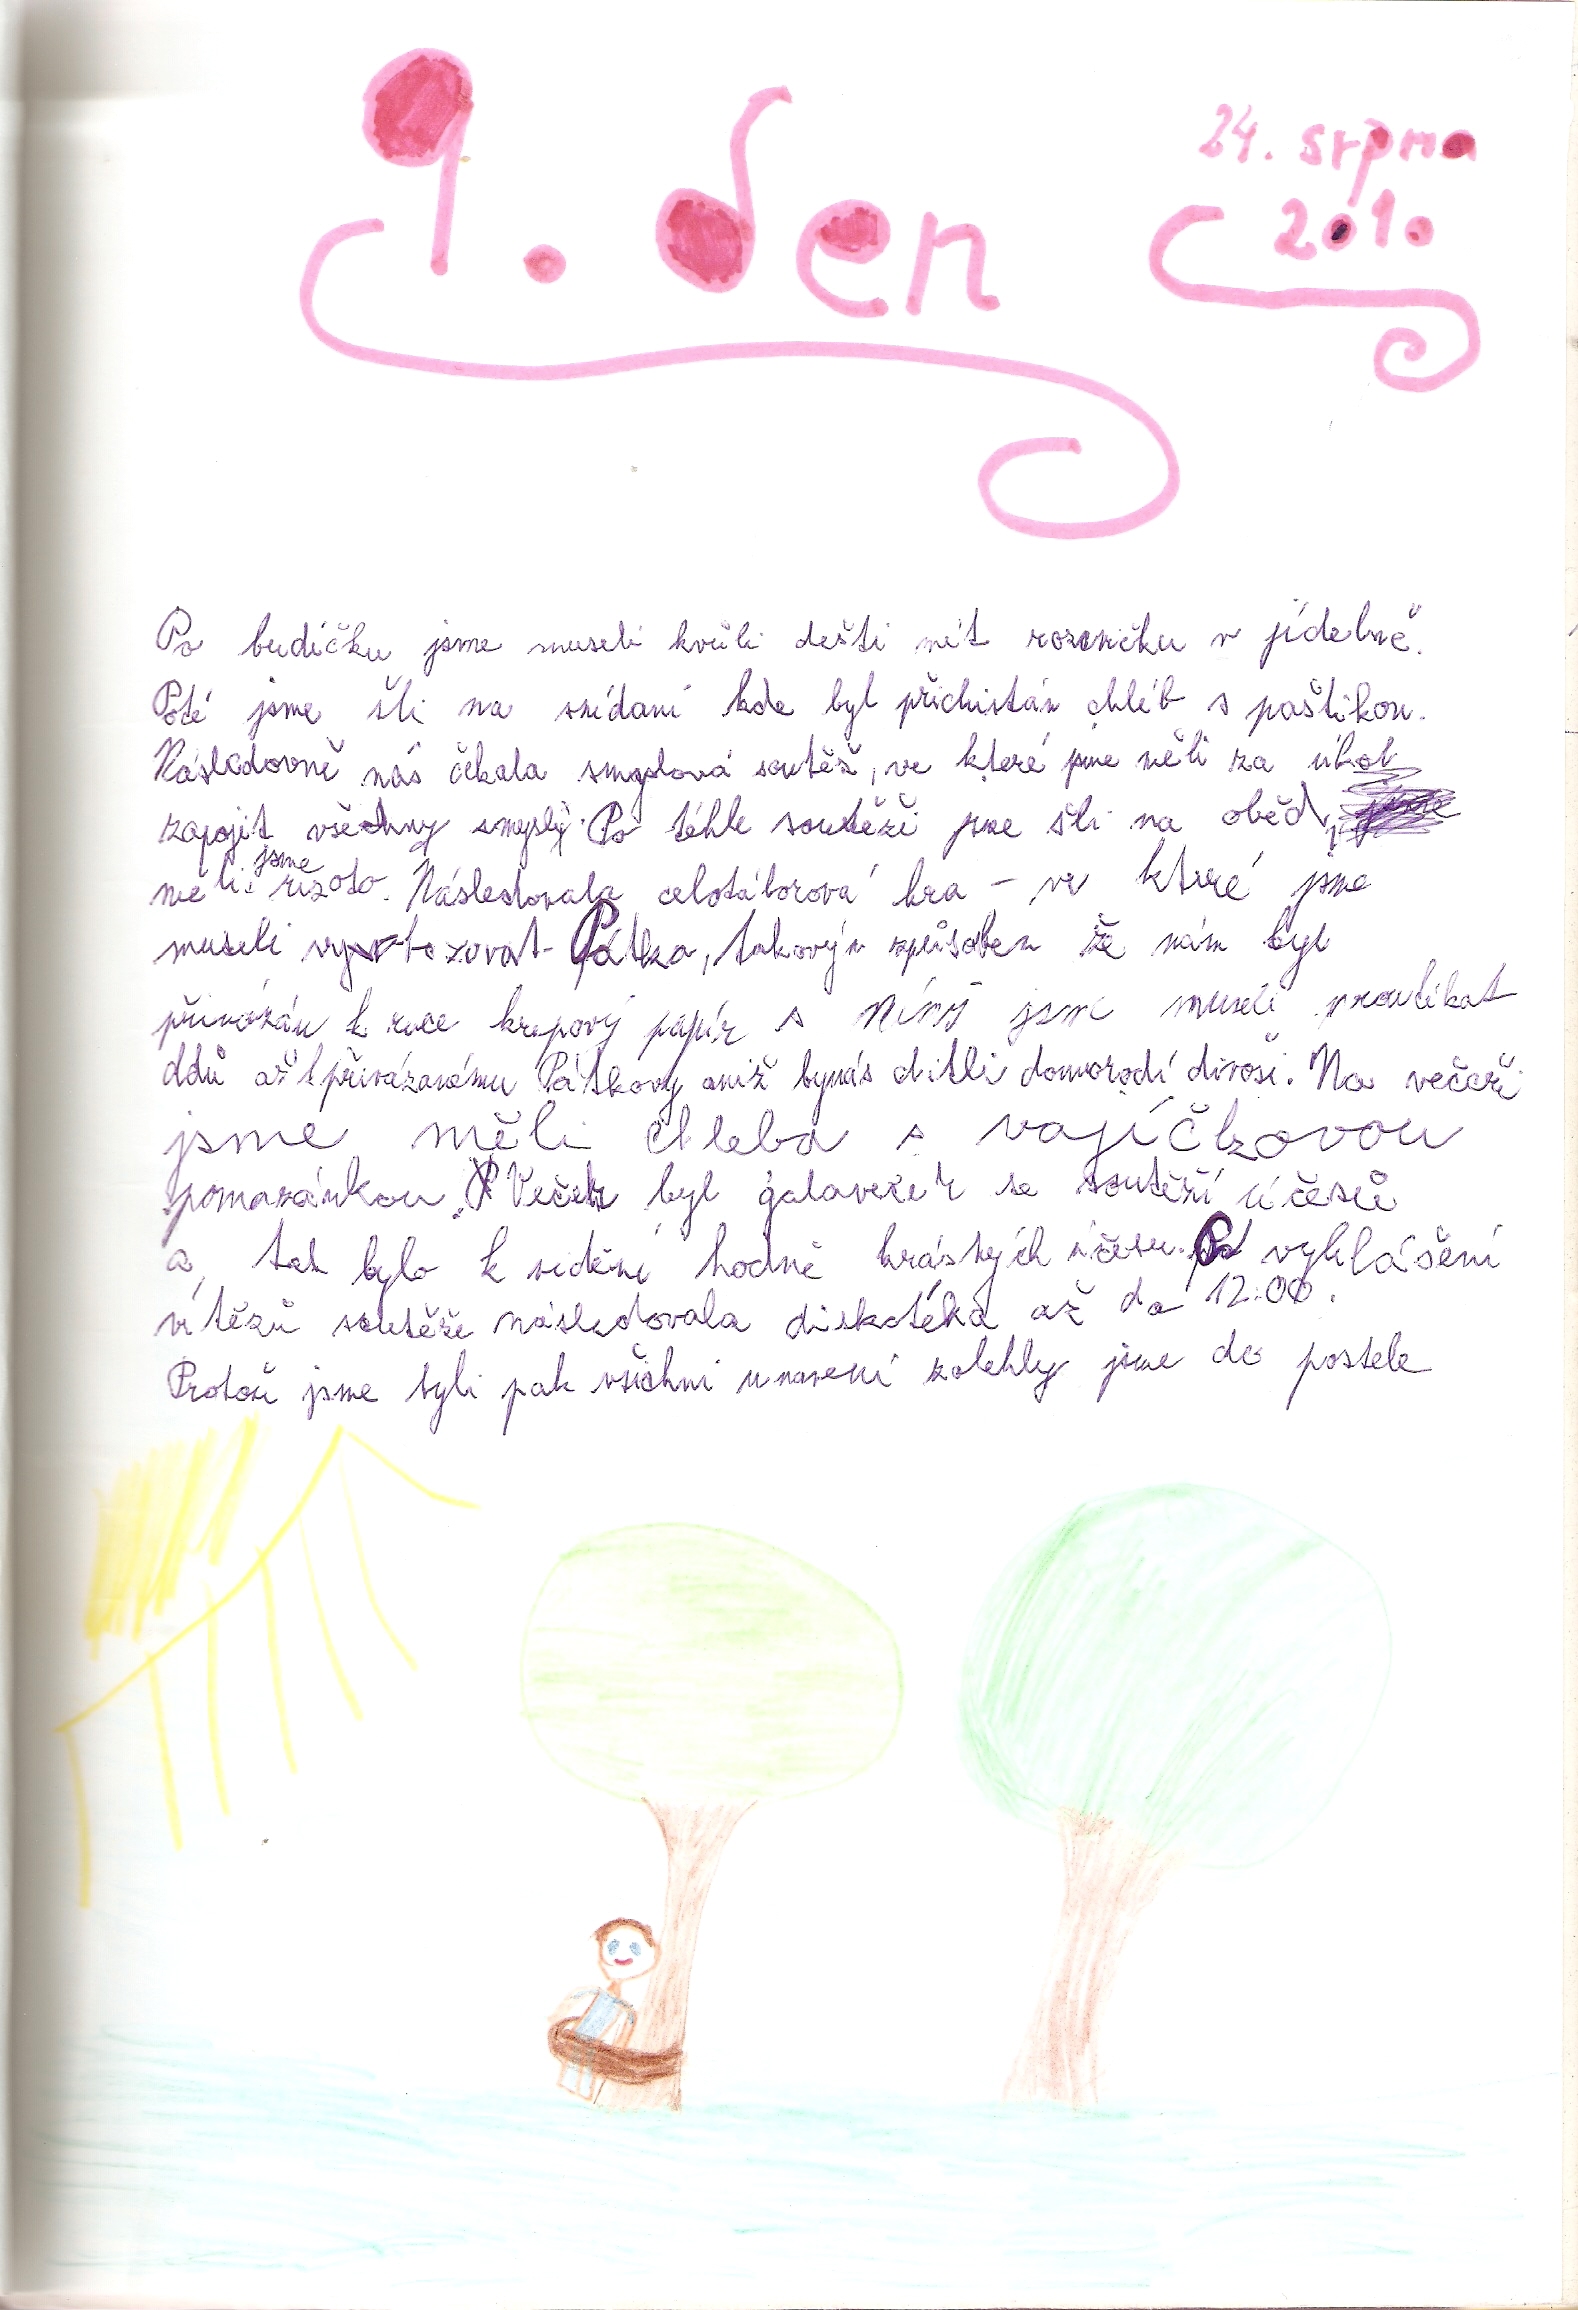 9. den
24. srpna
2010
Po budíčku jsme museli kvůli dešti mít rozcvičku v jídelně.
Poté jsme šli na snídani kde byl přichistán chléb s paštikou.
Následovně nás čekala smyslová soutěž, ve které jsme měli za úkol
zapojit všechny smysly. Po téhle soutěži jsme šli na oběd,
měli jsme rizoto. Následovala celotáborová hra - ve které jsme
museli Pátka, takovým způsobem že nám byl
přivázán k ruce krepový papír s nímž jsme museli proutikat
až k přivázanému Pátkovy aniž bynás chitli domorodí divoši. Na večeři
jsme měli chleba s vajíčkovou
pomazánkou. Večer byl galavečer se soutěží účesů
a tak bylo k vidění hodně krásných účesu. Po vyhlášení
vítězů soutěže následovala diskotéka až do 12:00.
Protože jsme byli pak všichni unavení zalehly jsme do postele